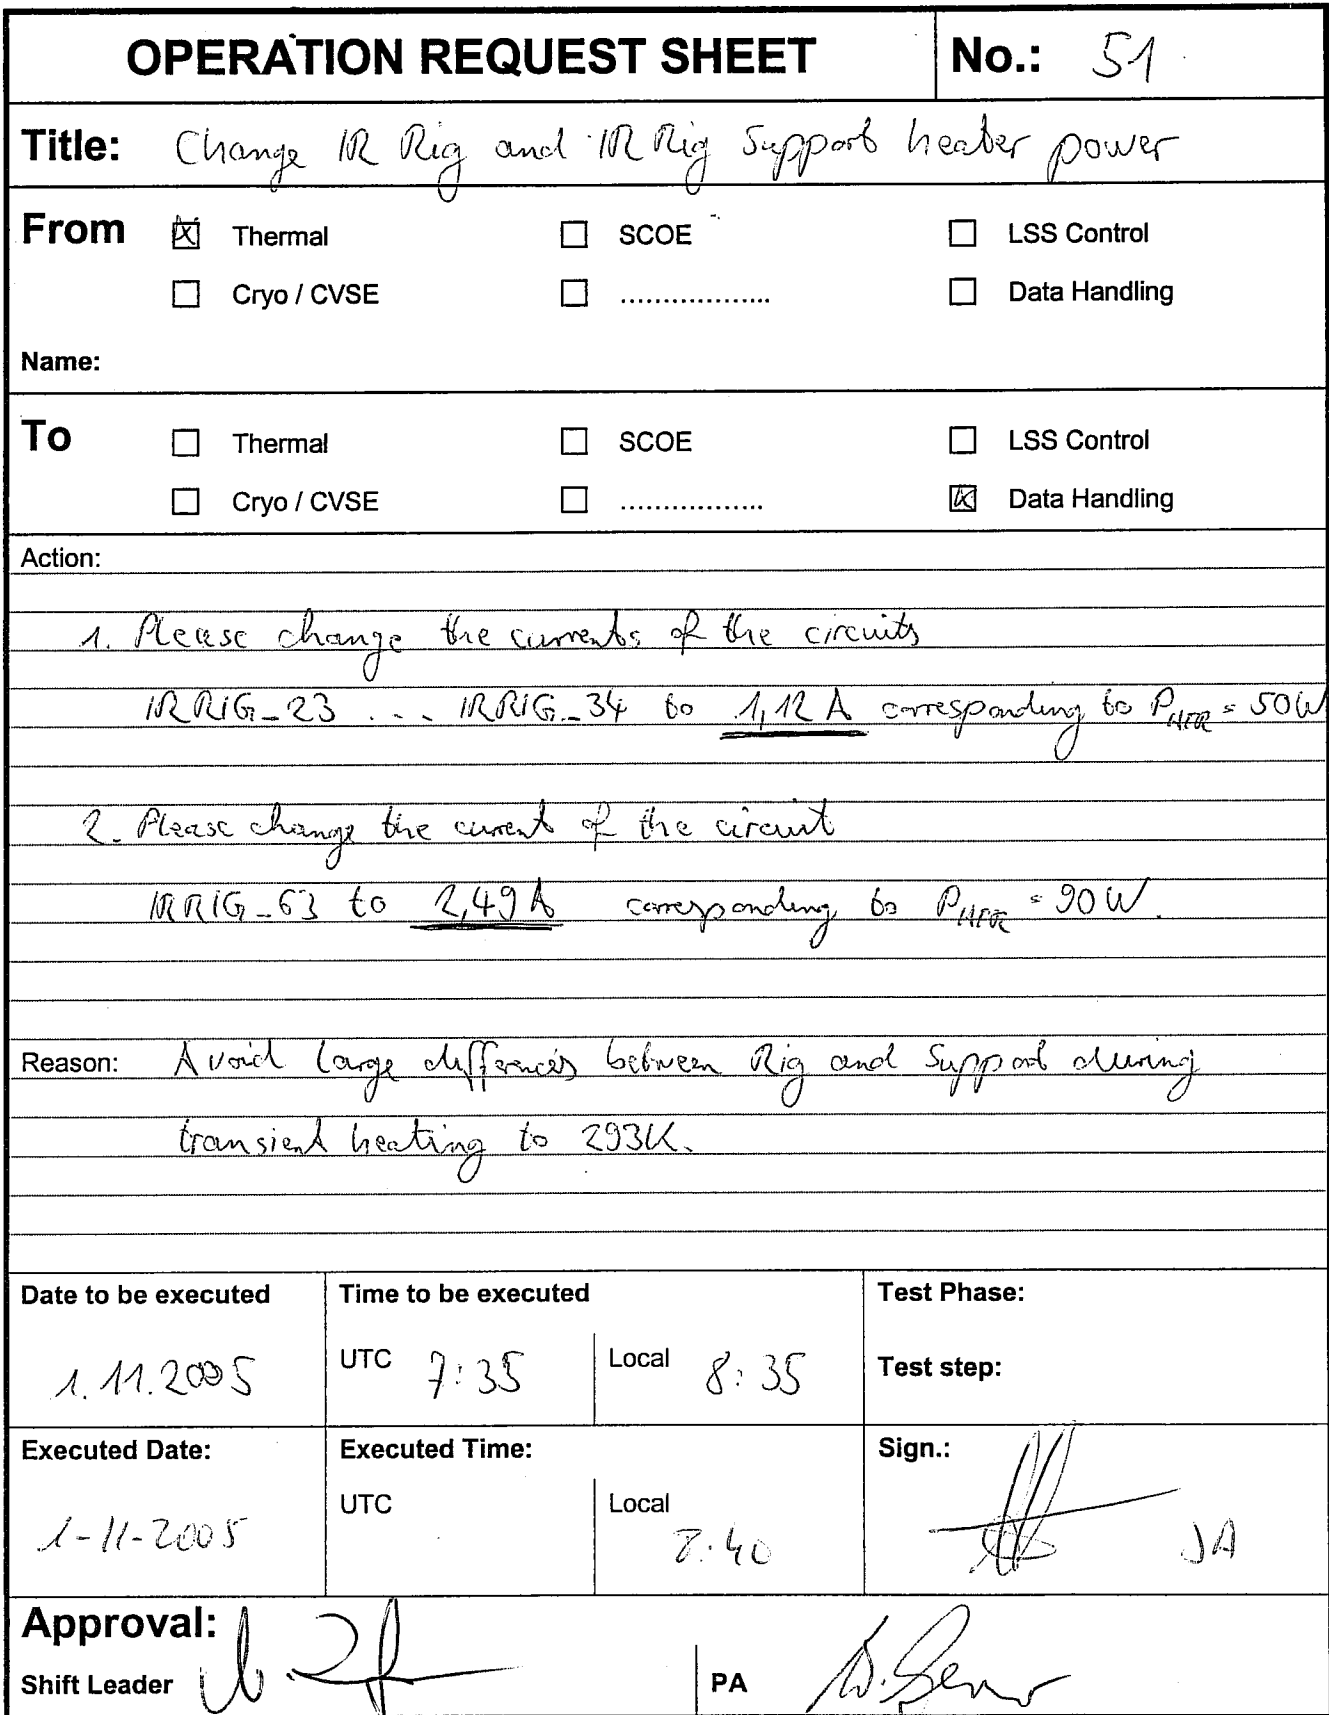 OPERATION REQUEST SHEET No.: 51
Title: Change IR Rig and IR Rig Support heater power
From Thermal SCOE LSS Control
Cryo / CVSE .................. Data Handling
Name:
To Thermal SCOE LSS Control
Cryo / CVSE ................. Data Handling
Action:
1. Please change the currents of the circuits
IRRIG_23 ... IRRIG_34 to 1,12 A corresponding to PHTR = 50W
2. Please change the current of the circuit
IRRIG_63 to 2,49 A corresponding to PHTR = 90W.
Reason: Avoid large differences between Rig and Support during
transient heating to 293K.
Date to be executed Time to be executed Test Phase:
1.11.2005 UTC 7:35 Local 8:35 Test step:
Executed Date: Executed Time: Sign.:
1-11-2005 UTC Local 8:40 JA
Approval:
Shift Leader PA